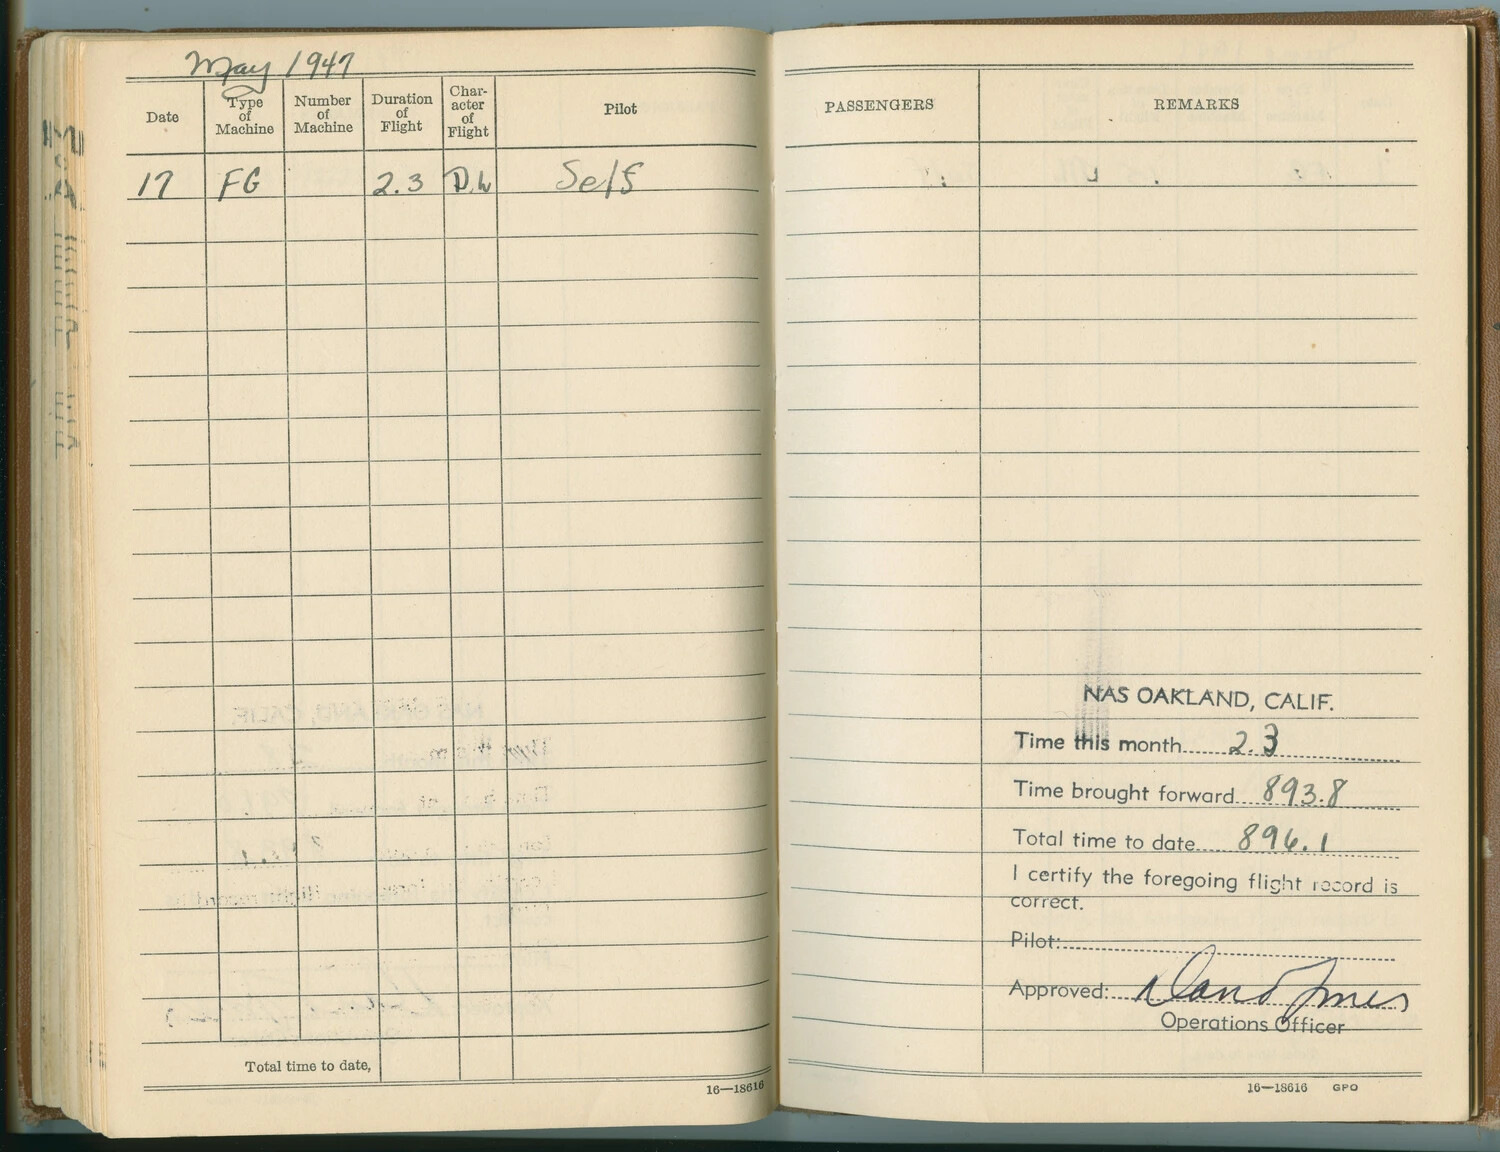 May 1947
Date
Type of Machine
Number of Machine
Duration of Flight
Char-acter of Flight
Pilot
PASSENGERS
REMARKS
17 FG 2.3 Self
NAS OAKLAND, CALIF.
Time this month 2.3
Time brought forward 893.8
Total time to date 896.1
I certify the foregoing flight record is
correct.
Pilot:
Approved:
Operations Officer
Total time to date,
16—18616
16—18616 GPO